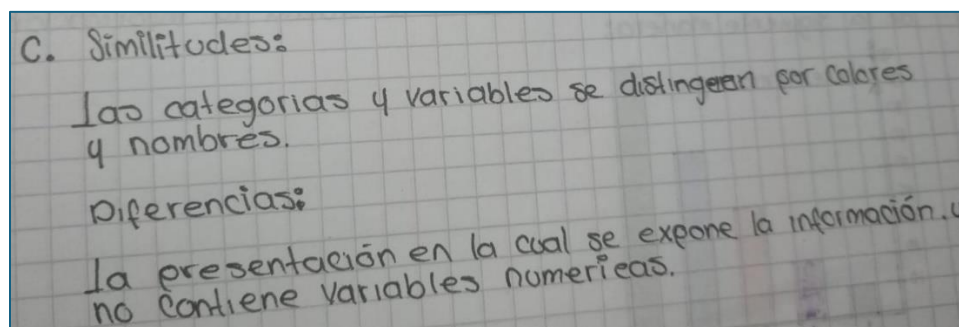 C. Similitudes:
Las categorias y variables se distingeen por colores
y nombres.
Diferencias:
La presentación en la cual se expone la información. y
no contiene variables numericas.